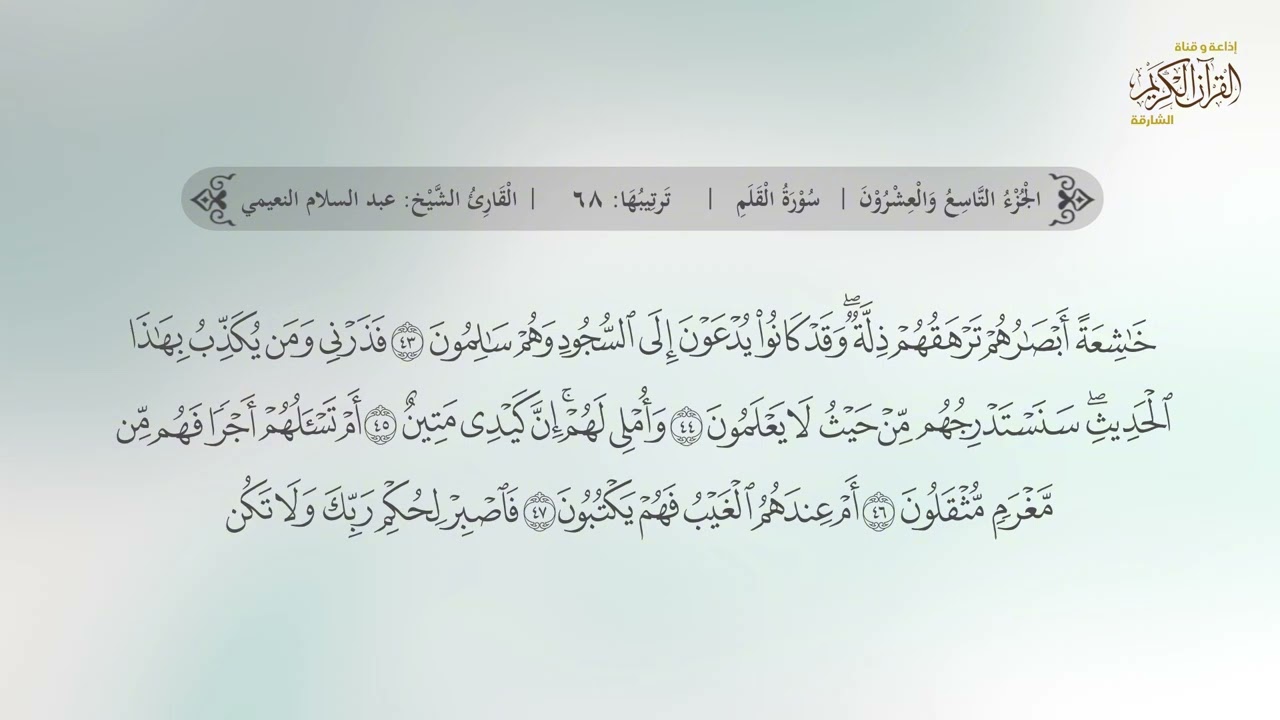 إذاعة و قناة
القرآن الكريم
الشارقة
الْجُزْءُ التَّاسِعُ وَالْعِشْرُوْنَ | سُوْرَةُ الْقَلَمِ | تَرتِيبُهَا: ٦٨ | الْقَارِئُ الشَّيْخ: عبد السلام النعيمي
خَٰشِعَةً أَبْصَٰرُهُمْ تَرْهَقُهُمْ ذِلَّةٌۖ وَقَدْ كَانُوا۟ يُدْعَوْنَ إِلَى ٱلسُّجُودِ وَهُمْ سَٰلِمُونَ ٤٣ فَذَرْنِى وَمَن يُكَذِّبُ بِهَٰذَا
ٱلْحَدِيثِۖ سَنَسْتَدْرِجُهُم مِّنْ حَيْثُ لَا يَعْلَمُونَ ٤٤ وَأُمْلِى لَهُمْۚ إِنَّ كَيْدِى مَتِينٌ ٤٥ أَمْ تَسْـَٔلُهُمْ أَجْرًا فَهُم مِّن
مَّغْرَمٍ مُّثْقَلُونَ ٤٦ أَمْ عِندَهُمُ ٱلْغَيْبُ فَهُمْ يَكْتُبُونَ ٤٧ فَٱصْبِرْ لِحُكْمِ رَبِّكَ وَلَا تَكُن